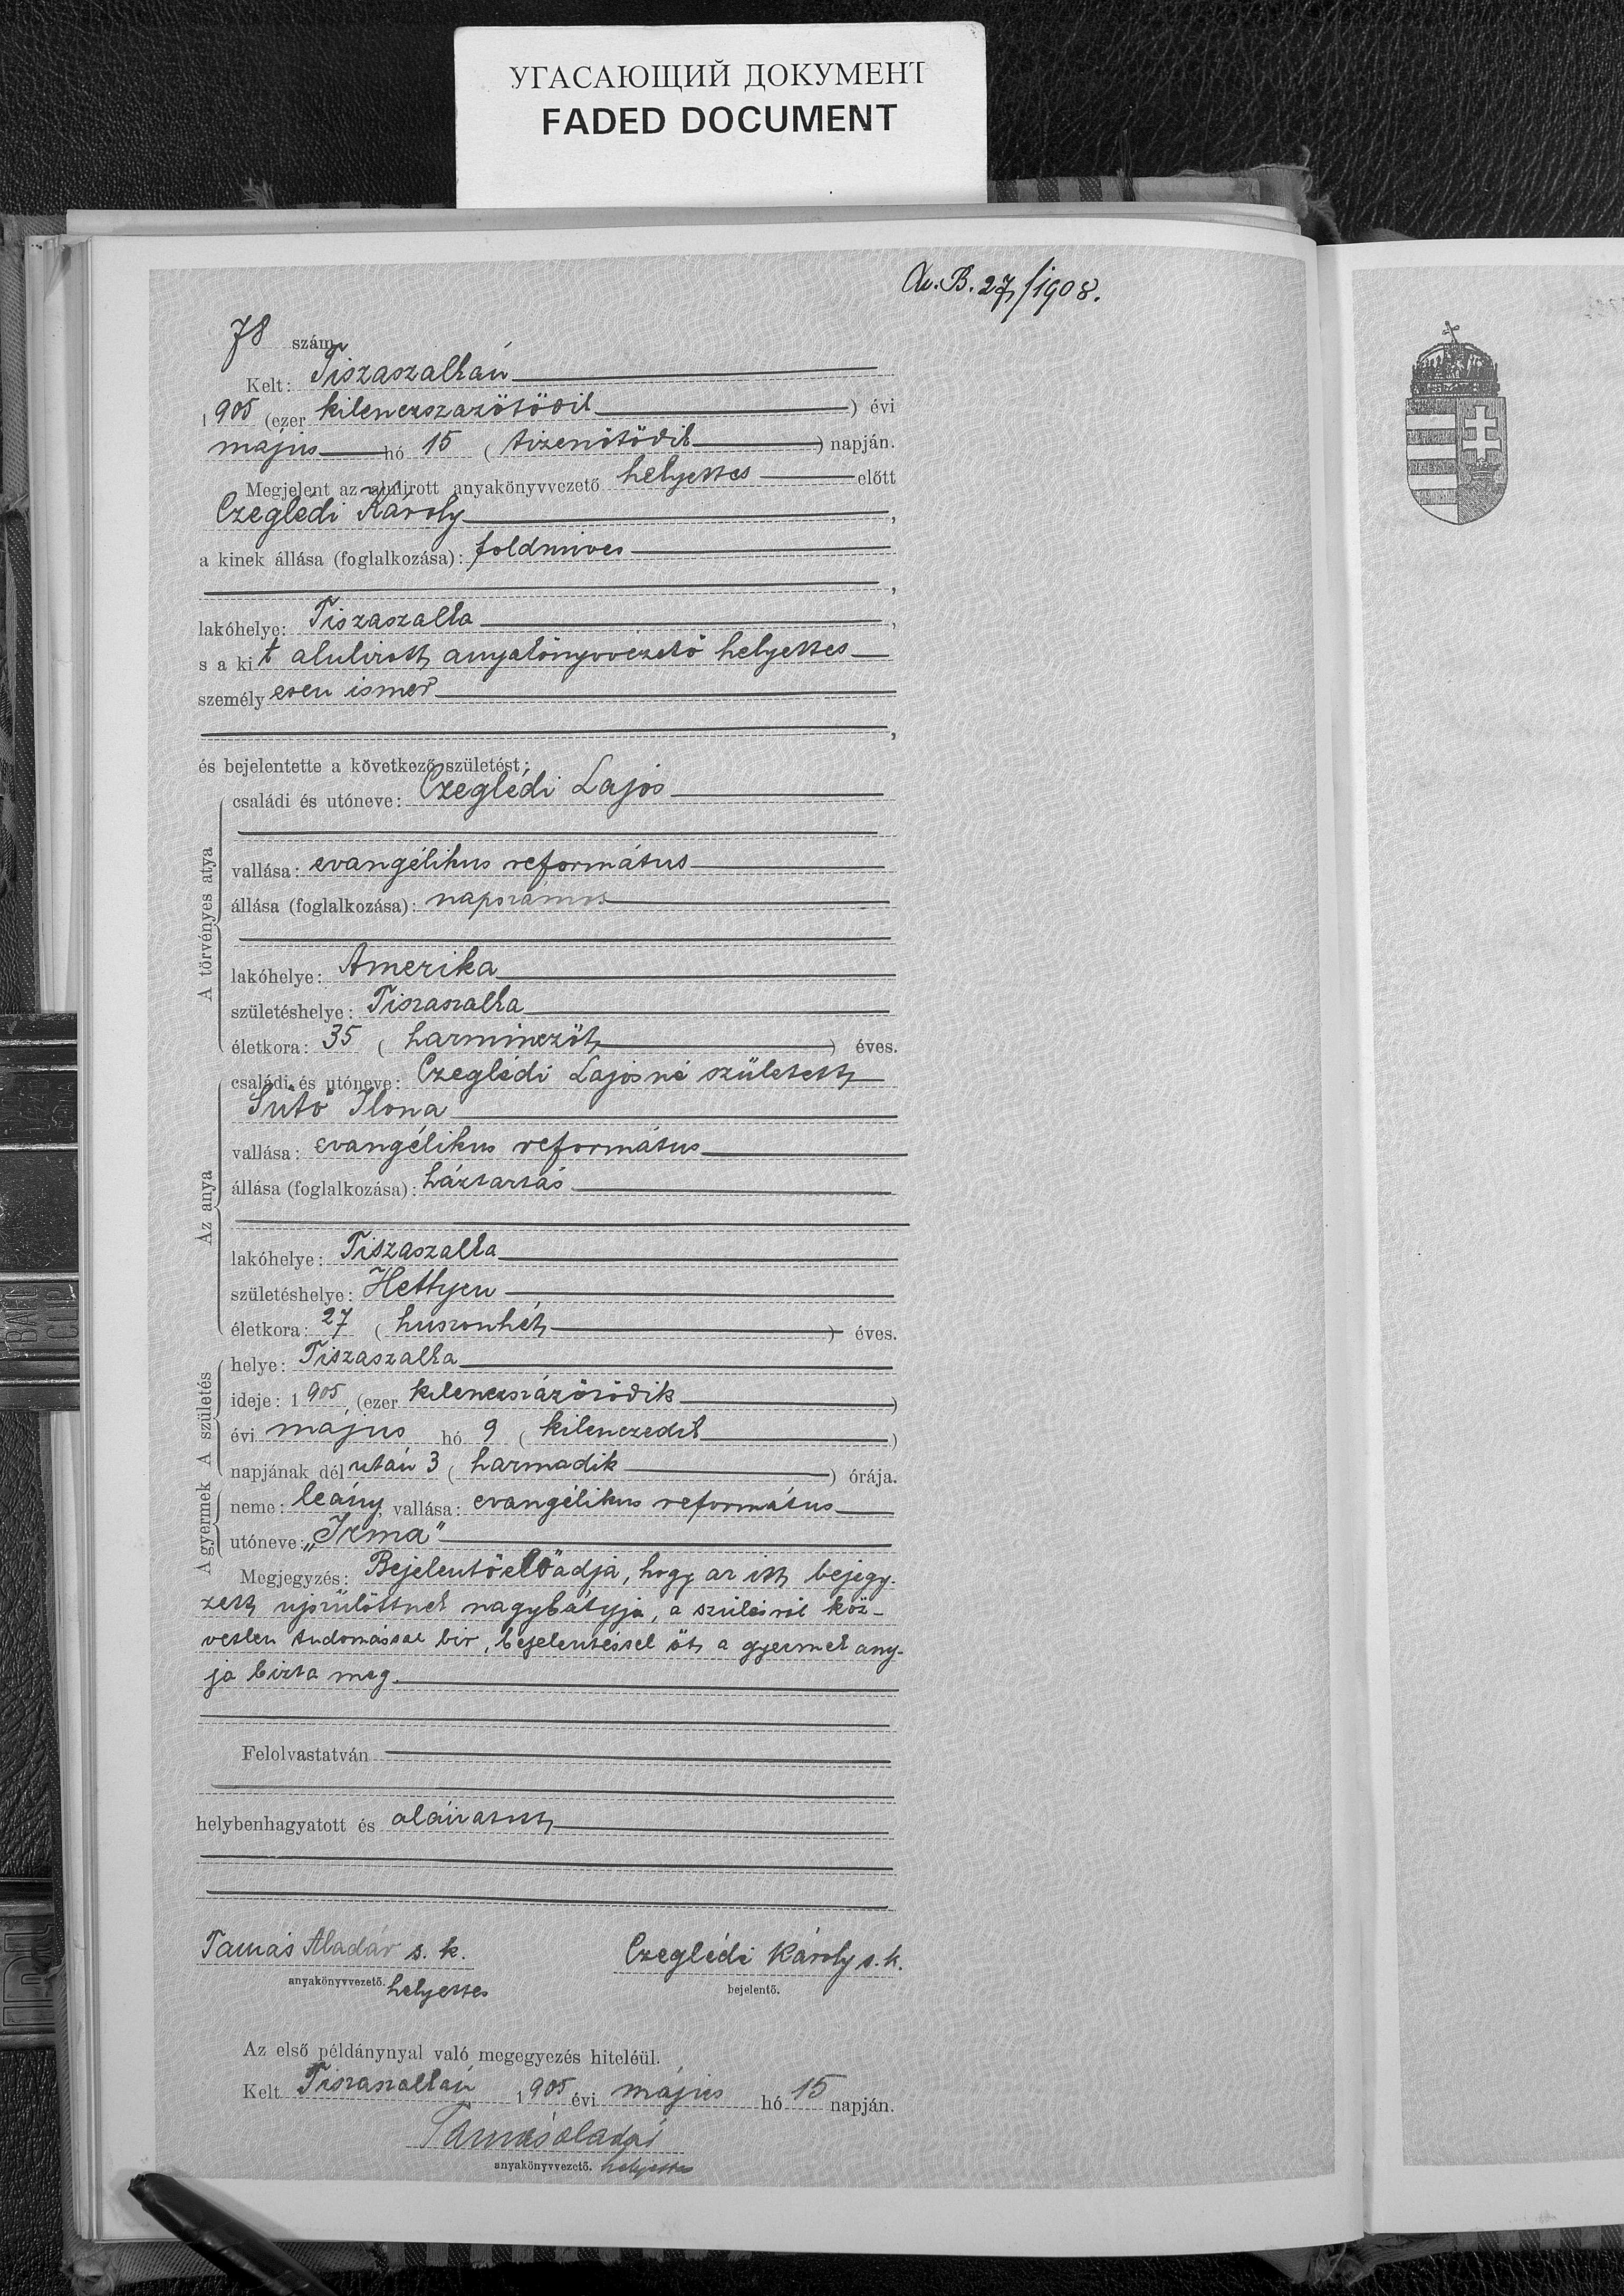 УГАСАЮЩИЙ ДОКУМЕНТ
FADED DOCUMENT
Av. B. 27/1908.
78 szám
Kelt: Tiszaszalkán
1905 (ezer kilenczszazötödik ) évi
május hó 15 ( tizenötödik ) napján.
Megjelent az alulirott anyakönyvvezető helyettes előtt
Czeglédi Károly,
a kinek állása (foglalkozása): foldmives
,
lakóhelye: Tiszaszalka,
s a kit alulirott anyakönyvvezető helyettes
személyesen ismer
,
és bejelentette a következő születést:
A törvényes atya
családi és utóneve: Czeglédi Lajos
vallása: evangélikus református
állása (foglalkozása): napszámos
lakóhelye: Amerika
születéshelye: Tiszaszalka
életkora: 35 ( harminczöt ) éves.
Az anya
családi és utóneve: Czeglédi Lajosné született
Sütő Ilona
vallása: evangélikus református
állása (foglalkozása): háztartás
lakóhelye: Tiszaszalka
születéshelye: Hettyen
életkora: 27 ( huszonhét ) éves.
A születés
helye: Tiszaszalka
ideje: 1905, (ezer kilenczszázötödik )
évi május hó 9 ( kilenczedik )
napjának dél után 3 ( harmadik ) órája.
A gyermek
neme: leány, vallása: evangélikus református
utóneve: „Irma"
Megjegyzés: Bejelentő előadja, hogy az itt bejegy-
zett ujszülöttnek nagybátyja, a szülésről köz-
vetlen tudomással bir, bejelentéssel öt a gyermek any-
ja bizta meg.
Felolvastatván
helybenhagyatott és aláiratott
Tamás Aladár s. k.
anyakönyvvezető. helyettes
Czeglédi Károly s. k.
bejelentő.
Az első példánynyal való megegyezés hiteléül.
Kelt Tiszaszalkán 1905 évi május hó 15 napján.
Tamás Aladár
anyakönyvvezető. helyettes